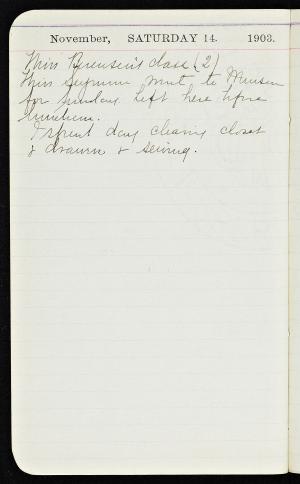 November, SATURDAY 14. 1903.
Miss class (2)
Miss went to
for Sunday. Left here before
luncheon.
I spent day cleaning closet
& drawers & sewing.